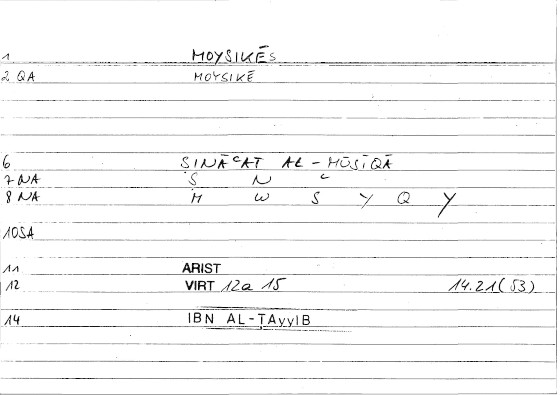 1 MOYSIKĒS
2 QA MOYSIKĒ
6 ṢINĀʿAT AL-MŪSĪQĀ
7 NA Ṣ N ʿ
8 NA M W S Y Q Y
10SA
11 ARIST
12 VIRT 12a 15 14.21(53)
14 IBN AL-ṬAyyIB